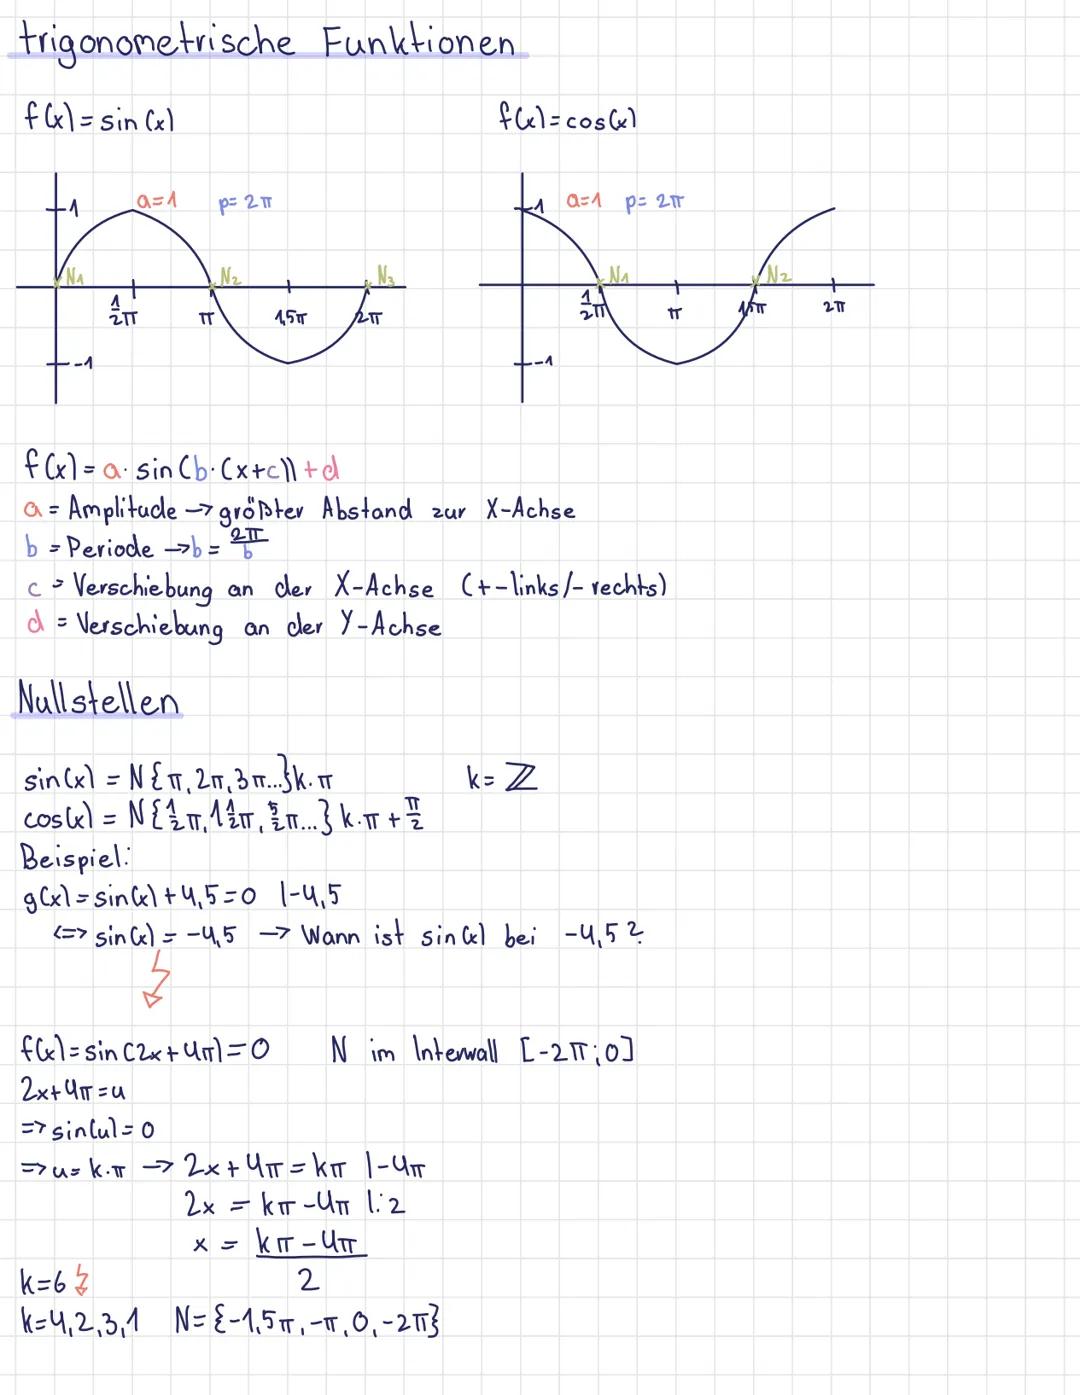 trigonometrische Funktionen
f(x) = sin(x)
f(x) = cos(x)
1
a=1
p= 2π
N1
N2
N3
1/2π
π
1,5π
2π
-1
1
a=1
p= 2π
N1
N2
1/2π
π
1,5π
2π
-1
f(x) = a· sin(b·(x+c)) + d
a = Amplitude → größter Abstand zur X-Achse
b = Periode → b = 2π/b
c = Verschiebung an der X-Achse (+-links/- rechts)
d = Verschiebung an der Y-Achse
Nullstellen
sin(x) = N{π, 2π, 3π...}k·π k= ℤ
cos(x) = N{1/2π, 1 1/2π, 5/2π...} k·π + π/2
Beispiel:
g(x) = sin(x) + 4,5 = 0 |-4,5
<=> sin(x) = -4,5 → Wann ist sin(x) bei -4,5?
f(x) = sin(2x+4π) = 0 N im Interwall [-2π;0]
2x+4π = u
=> sin(u) = 0
=> u = k·π → 2x + 4π = kπ |-4π
2x = kπ - 4π |:2
x = kπ - 4π / 2
k=6
k=4,2,3,1 N= {-1,5π, -π, 0, -2π}